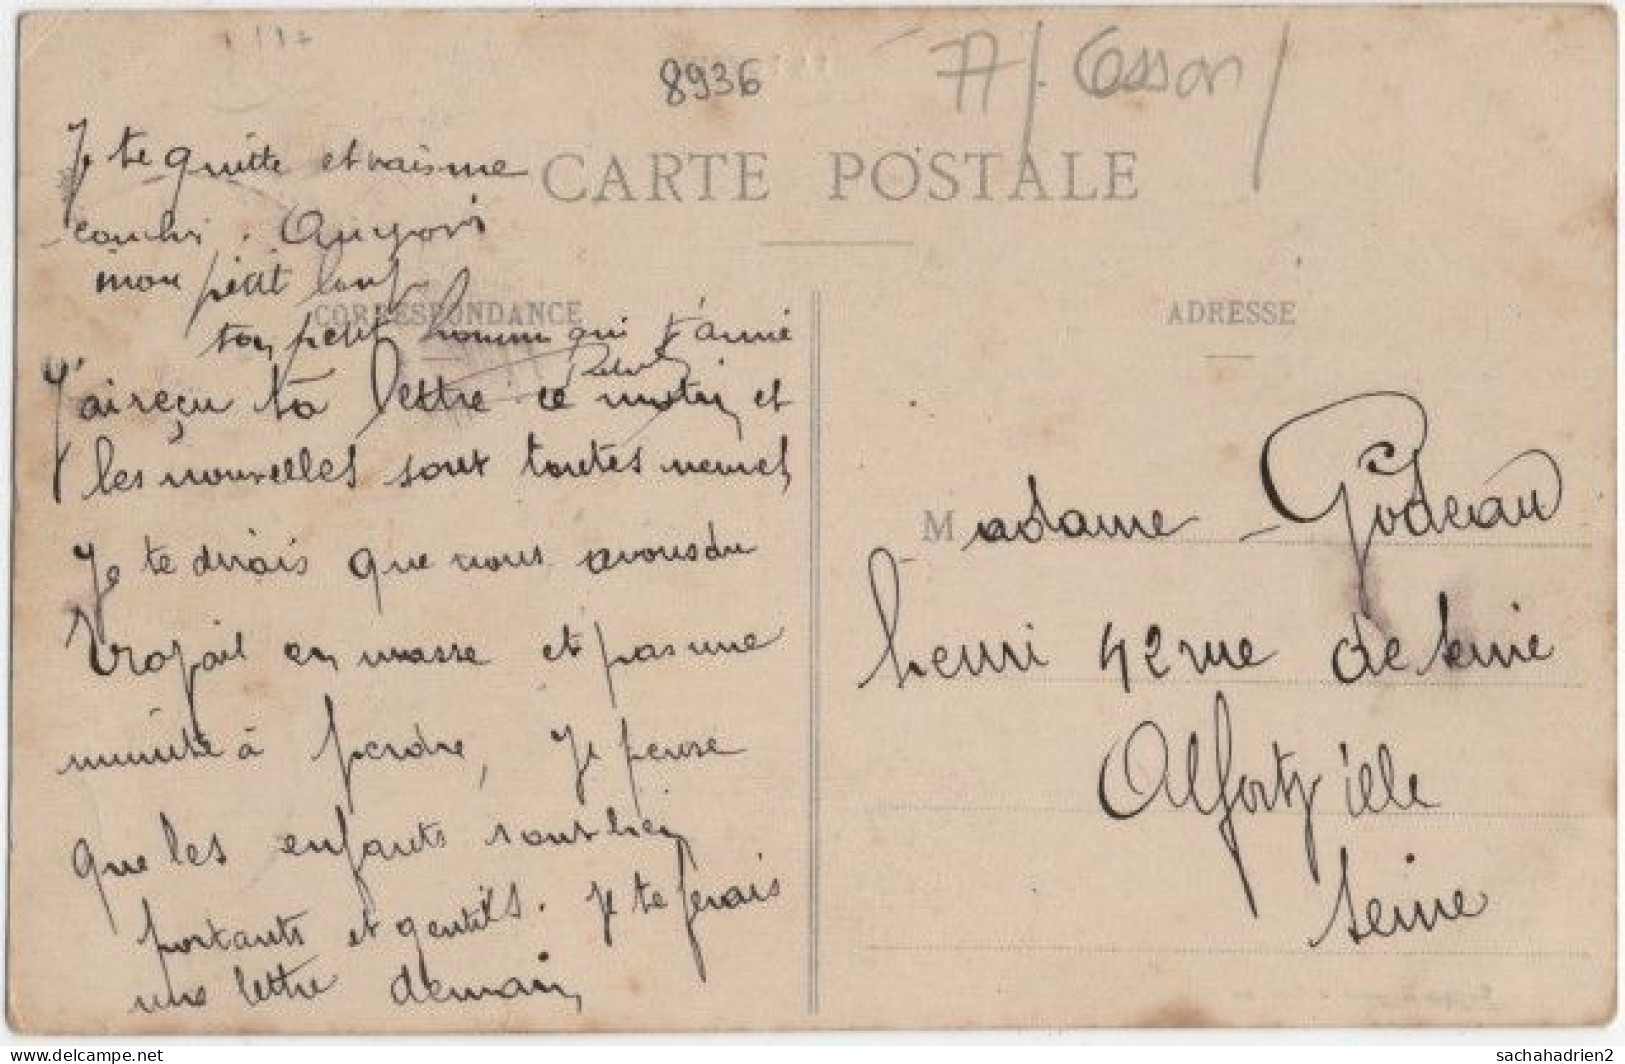 8936
77/. Esson/
CARTE POSTALE
Je te quitte et vais me
coucher.
mon petit
CORRESPONDANCE
ton petit homme qui t'aime
J'ai reçu ta lettre ce matin et
les nouvelles sont toutes
Je te dirais que nous avons du
travail en masse et pas une
minute à perdre, Je pense
que les enfants sont bien
portants et gentils. Je te ferais
une lettre demain
ADRESSE
Madame Godeau
henri 42 rue de Seine
Alfortville
Seine
sachahadrien2